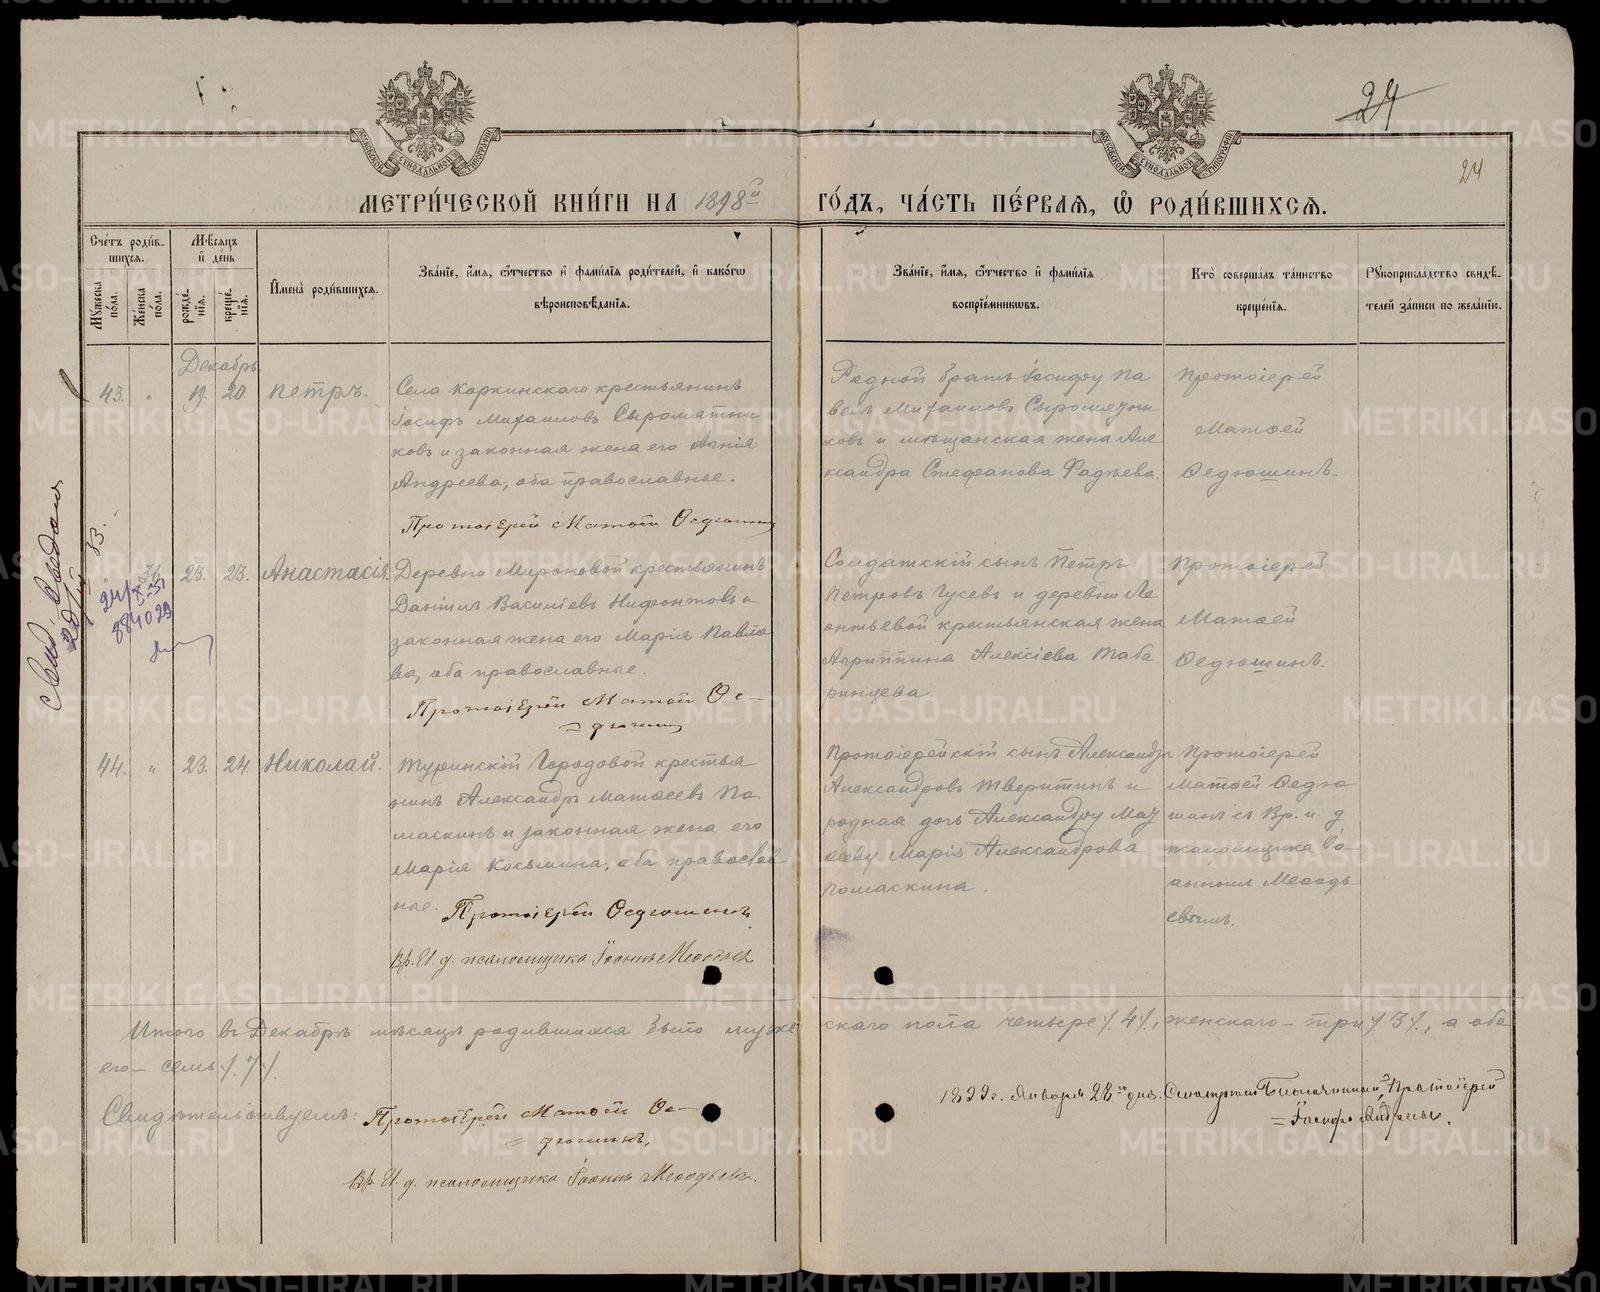 24
24
МЕТРИ́ЧЕСКОЙ КНИ́ГИ НА 1898й ГО́ДЪ, ЧА́СТЬ ПЕ́РВАЯ, Ѡ РОДИ́ВШИХСЯ.
Сче́тъ роди́вшихся.
Мꙋ́жеска по́ла.
Же́нска по́ла.
Мѣ́сяцъ и де́нь
рожде́нїя.
креще́нїя.
Имена̀ роди́вшихся.
Зва́нїе, и́мя, ѻ́тчество и фами́лїя роди́телей, и како́гѡ вѣроисповѣ́данїя.
Зва́нїе, и́мя, ѻ́тчество и фами́лїя воспрїе́мникѡвъ.
Кто̀ соверша́лъ та́инство креще́нїя.
Рꙋкоприкла́дство свидѣ́телей за́писи по жела́нїю.
Декабрь
43. " 19. 20. Петръ.
Села Коркинскаго крестьянинъ
Іосифъ Михаиловъ Сыромятни
ковъ и законная жена его Агнія
Андреева, оба православные.
Протоіерей Матѳей Ѳедюшинъ
Родной братъ Іосифу Па
велъ Михаиловъ Сыромятни
ковъ и мѣщанская жена Але
ксандра Стефанова Фадѣева.
Протоіерей
Матѳей
Ѳедюшинъ.
" 36. 23. 23. Анастасія.
Деревни Мироновой крестьянинъ
Даніилъ Василіевъ Нифонтовъ и
законная жена его Марія Павло
ва, оба православные.
Протоіерей Матѳей Ѳе-
=дюшинъ
Солдатскій сынъ Петръ
Петровъ Гусевъ и деревни Ле
онтьевой крестьянская жена
Агриппина Алексіева Таба
ринцева.
Протоіерей
Матѳей
Ѳедюшинъ.
884029
44. " 23. 24. Николай.
Туринскій Городовой крестья
нинъ Александръ Матѳеевъ По
маскинъ и законная жена его
Марія Косьмина, оба православ
ные.
Протоіерей Ѳедюшинъ
Вр. И. д. псаломщика Іоаннъ Меѳодьев
Протоіерейскій сынъ Александръ
Александровъ Тверитинъ и
родная дочь Александру Мат
ѳееву Марія Александрова
Помаскина.
Протоіерей
Матѳей Ѳедю
шинъ съ Вр. и. д
псаломщика Іо-
анномъ Меѳодь
евымъ.
Итого въ Декабрѣ мѣсяцѣ родившихся было муже
скаго пола четыре /. 4 /., женскаго – три /. 3 /., а обо
его – семь /. 7 /.
Свидѣтельствуемъ: Протоіерей Матѳей Ѳе-
=дюшинъ.
Вр. И. д. псаломщика Іоаннъ Меѳодьевъ.
1899 г. Января 28 дня. Смотрѣлъ Благочинный, Протоіерей